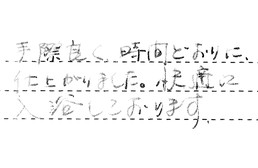 手際良く、時間どおりに、
仕上がりました。快適に
入浴しております。